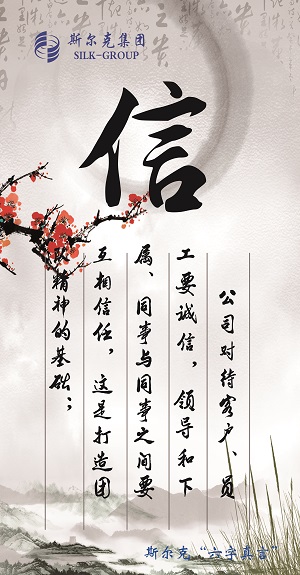 斯尔克集团
SILK-GROUP
信
公司对待客户、员
工要诚信，领导和下
属、同事与同事之间要
互相信任，这是打造团
队精神的基础；
斯尔克“六字真言”